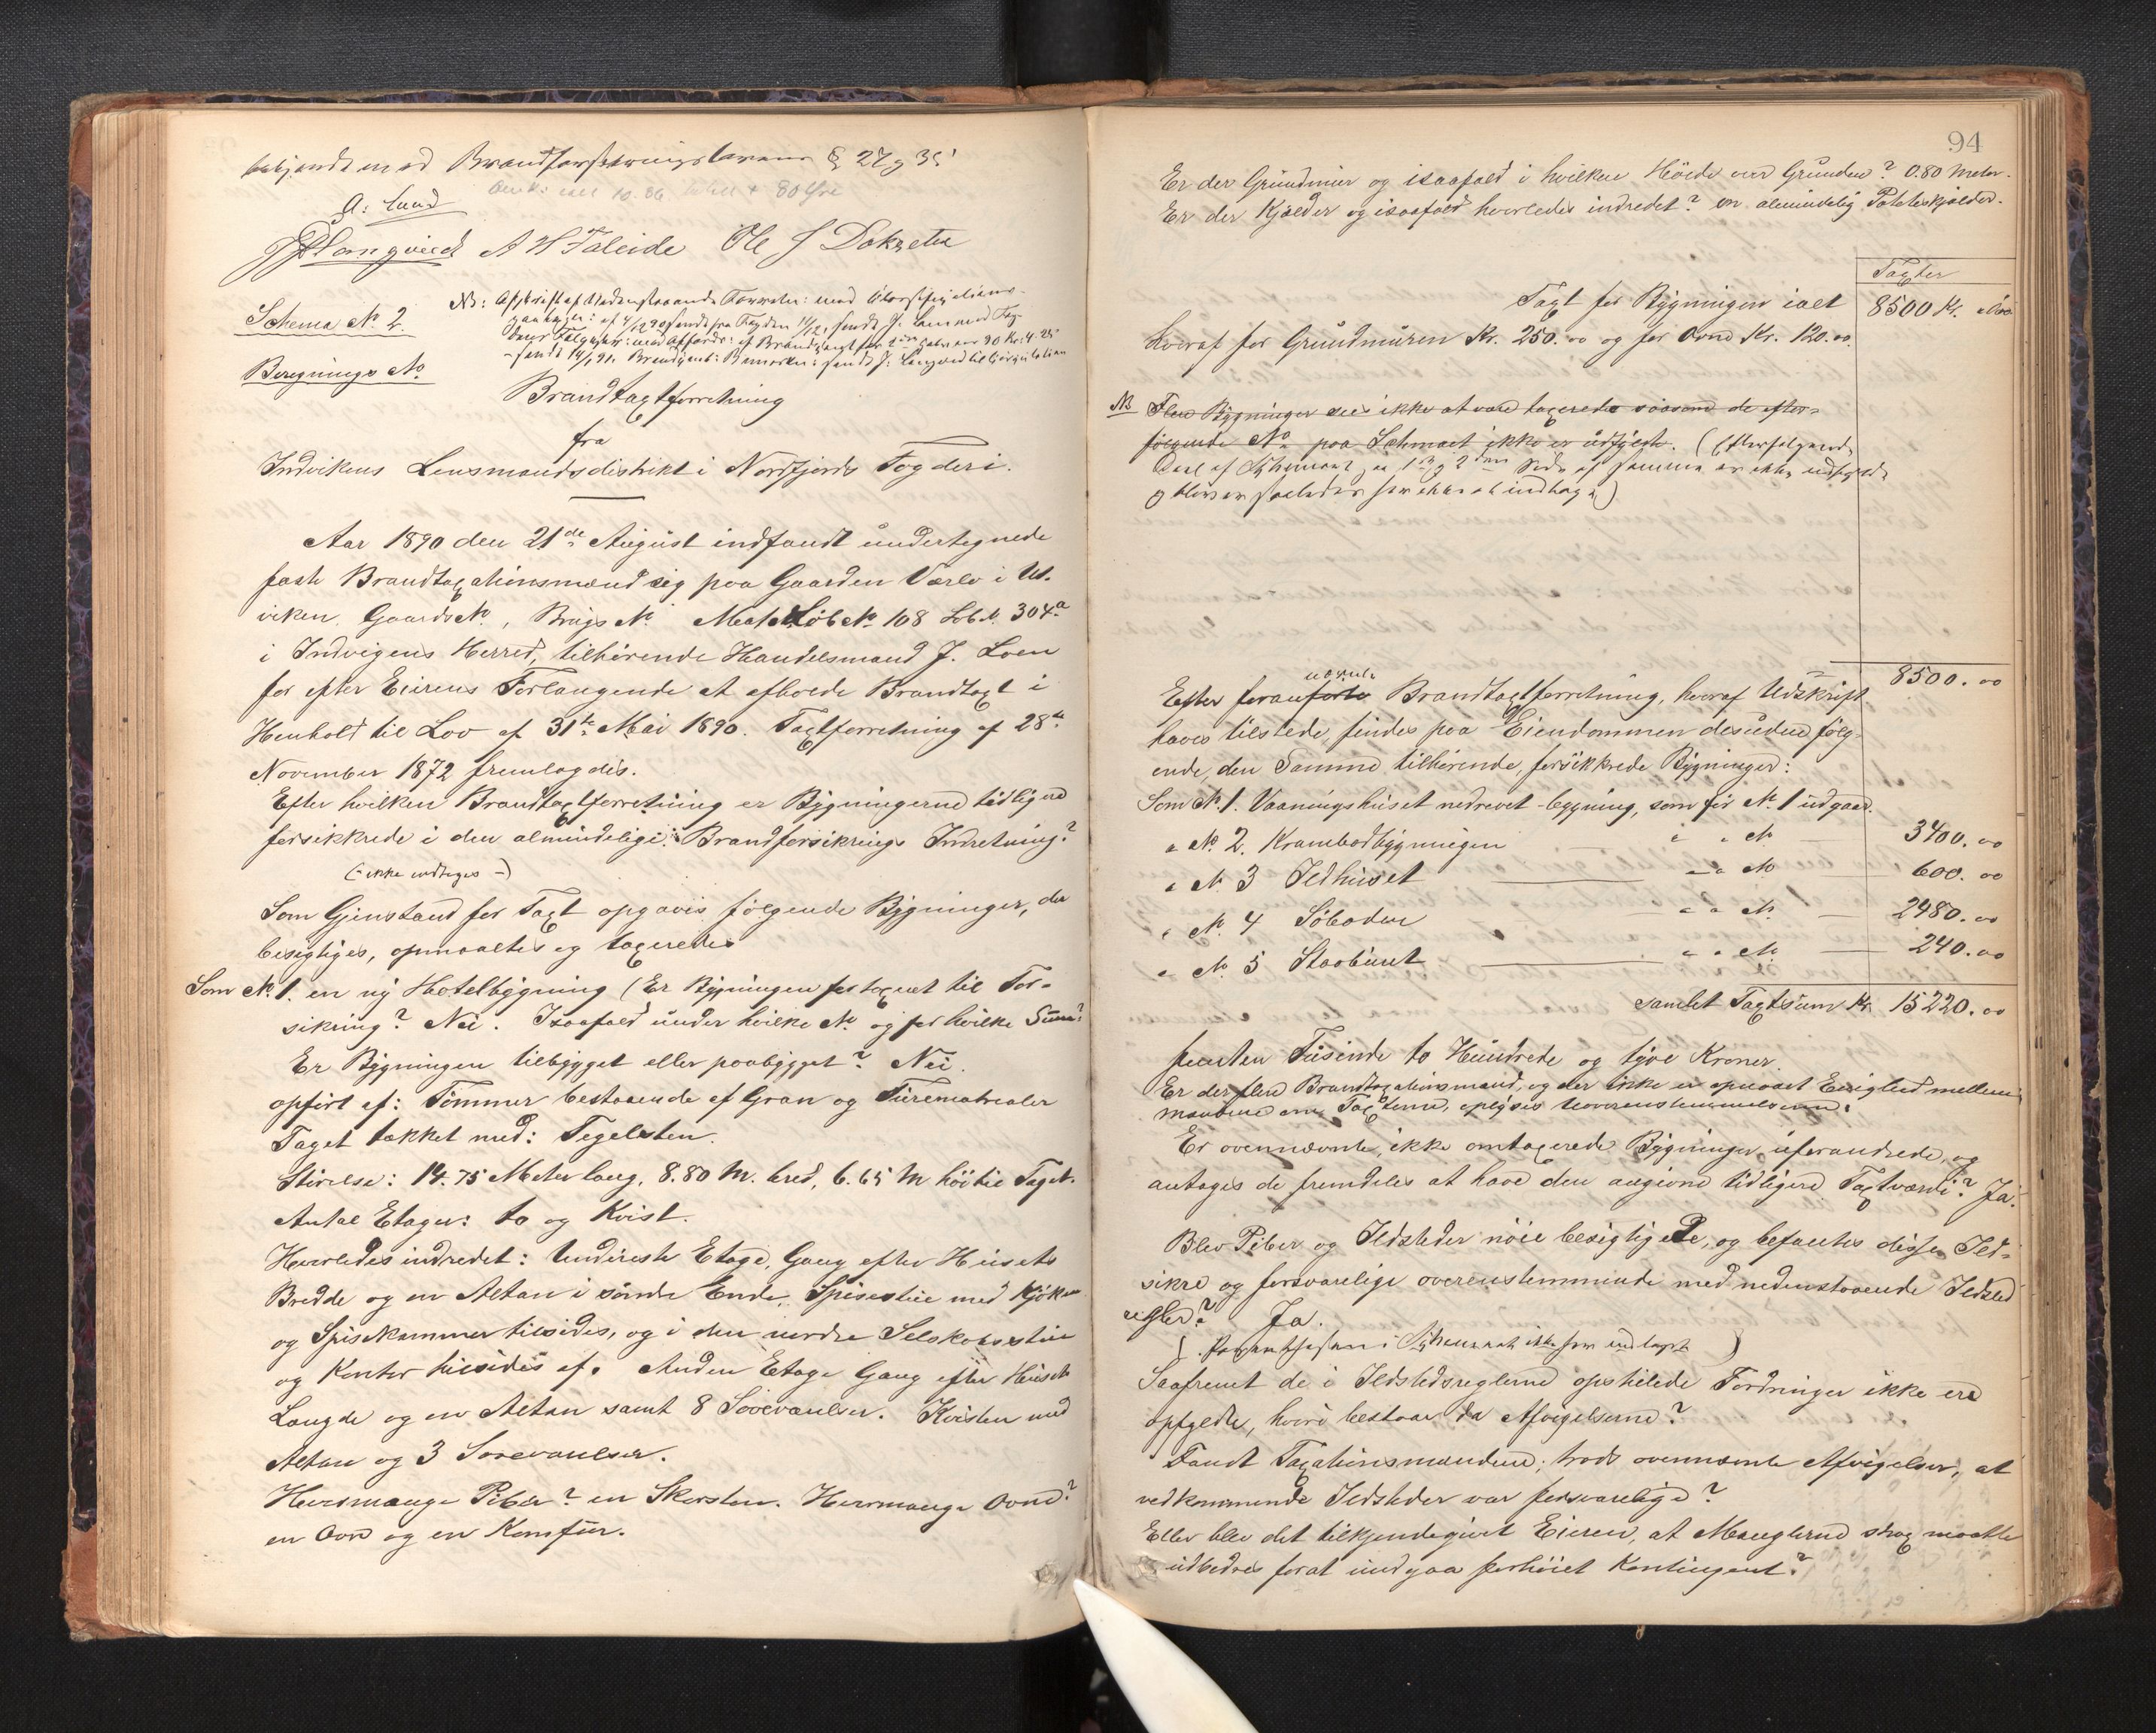 bekjendt med Brandforsikringslovens § 27 og 35
A. Lund
A H Faleide Ole J Dokset
Schema № 2.
NB: Afskrift af nedenstaaende Forretn: med
Beregnings №
Brandtaxtforretning
fra
Indvikens Lensmandsdistrikt i Nordfjords Fogderi.
Aar 1890 den 21de August indfandt undertegnede
faste Brandtaxationsmænd sig paa Gaarden Værlo i Ut-
viken Gaards№ , Brugs № Mat. Løb № 108 Lb. № 304a
i Indvigens Herred, tilhørende Handelsmand J. Loen
for efter Eierens Forlangende at afholde Brandtaxt i
Henhold til Lov af 31te Mai 1890. Taxtforretning af 28de
November 1872 fremlagdes.
Efter hvilken Brandtaxtforretning er Bygningerne tidligere
forsikkrede i den almindelige Brandforsikrings Indretning?
(- ikke indtages -)
Som Gjenstand for Taxt opgaves følgende Bygninger, der
besigtiges, opmaaltes og taxeredes
Som № 1. en ny Hotelbygning (Er Bygningen før taxeret til For-
sikring? Nei. Isaafald under hvilke № og for hvilke Summ?
Er Bygningen tilbygget eller paabygget? Nei.
opført af: Tømmer bestaaende af Gran og Furematrealer
Taget tækket med: Tegelsten.
Størelse: 14.75 Meter lang, 8.80 M. bred, 6.65 M høi til Taget.
Antal Etager: to og Kvist.
Hvorledes indredet: Underste Etage, Gang efter Husets
Bredde og en Altan i søndre Ende, Spisestue med Kjøken
og Spisekammer tilsides, og i den nordre Selskabsstue
og Kontor tilsides af. Anden Etage Gang efter Husets
Længde og en Altan samt 8 Soveværelser. Kvisten med
Altan og 3 Soveværelser.
Hvormange Piber? en Skorsten. Hvormange Ovne?
en Ovn og en Komfur.
94
Er der Grundmur og isaafald i hvilken Høide over Grunden? 0.80 Meter.
Er der Kjælder og isaafald hvorledes indredet? en almindelig Poteteskjælder.
Taxter
Taxt for Bygningen ialt 8500 Kr.
hvoraf for Grundmuren Kr. 250.00 og for Ovne Kr. 120.00.
NB Flere Bygninger sees ikke at være taxerede saasom de efter-
følgende № paa Schmaet ikke er udfyldt. (Efterfølgende
Deel af Schemaet paa 1ste og 2den Side af samme er ikke udfyldt
og bliver saaledes her ikke at indtage)
8500.00
nævnte
Efter foranførte Brandtaxtforretning, hvoraf Udskrift
haves tilstede, findes paa Eiendommen desuden følg-
ende, den Samme tilhørende, forsikkrede Bygninger:
Som № 1. Vaaningshuset nedrevet - bygning, som før № 1 udgaar.
" № 2. Krambodbygningen " " № 3400.00
" № 3 Ildhuset " " № 600.00
" № 4 Søboden " " № 2480.00
" № 5 Stabburet " " № 240.00
samlet Taxtsum Kr. 15220.00
femten Tusinde to Hundrede og tyve Kroner.
Er der flere Brandtaxationsmænd, og der ikke er opnaaet Enighed mellem
mændene om Taxterne, oplyses Uoverenstemmelserne:
Er ovennævnte, ikke omtaxerede Bygninger uforandrede, og
antages de fremdeles at have den angivne tidligere Taxtværdi? Ja.
Blev Piber og Ildsteder nøie besigtigede, og befantes disse Ild-
sikre og forsvarlige overenstemmende med nedenstaaende Ildsted
regler? Ja.
(Parenthesen i Schemaet ikke her indtaget)
Saafremt de i Ildstedsreglerne opstilede Fordringer ikke ere
opfyldte, hvori bestaar da Afvigelserne?
Fandt Taxationsmændene, trods ovennævnte Afvigelser, at
vedkommende Ildsteder var forsvarlige?
Eller blev det tilkjendegivet Eieren, at Manglerne strax maatte
udbedres forat undgaa forhøiet Kontingent?